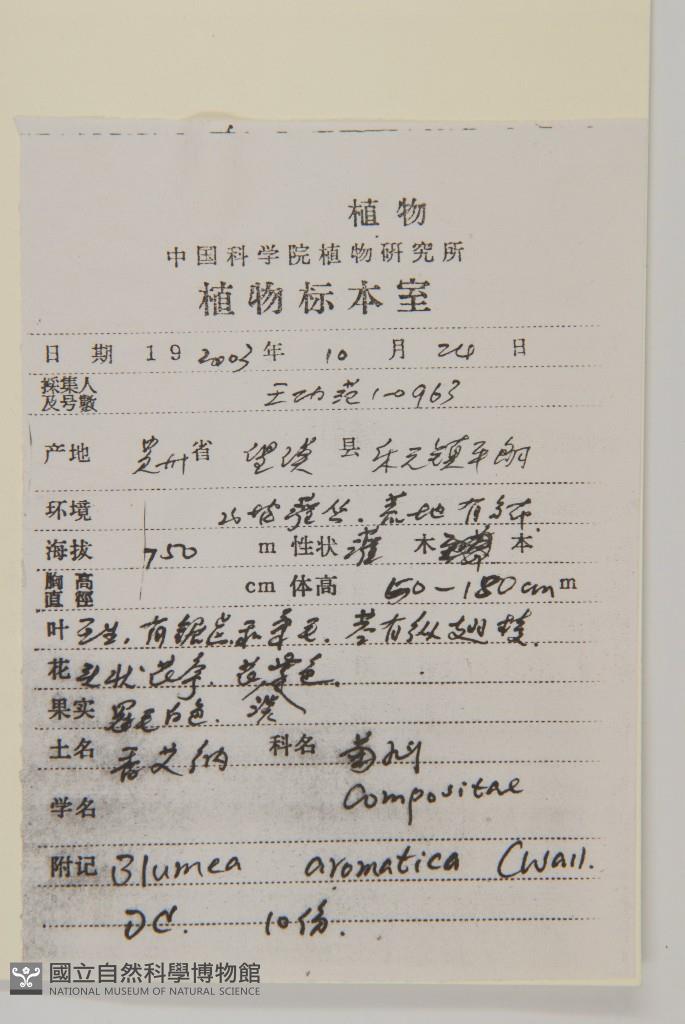 植物
中国科学院植物研究所
植物标本室
日 期 19 2003 年 10 月 24 日
採集人
及号數
王功范 1-0963
产地 贵州 省 望谟 县 乐元镇平朗
环境 山坡灌丛、荒地有分布
海拔 750 m 性状 灌 木 本
胸高
直徑
cm 体高 50-180cm m
叶 互生,有锯齿和柔毛,茎有纵翅棱.
花 头状花序,花紫色.
淡
果实 冠毛白色.
土名 香艾纳 科名 菊科
学名 Compositae
附记 Blumea aromatica (Wall.
DC. 10份.
國立自然科學博物館
NATIONAL MUSEUM OF NATURAL SCIENCE